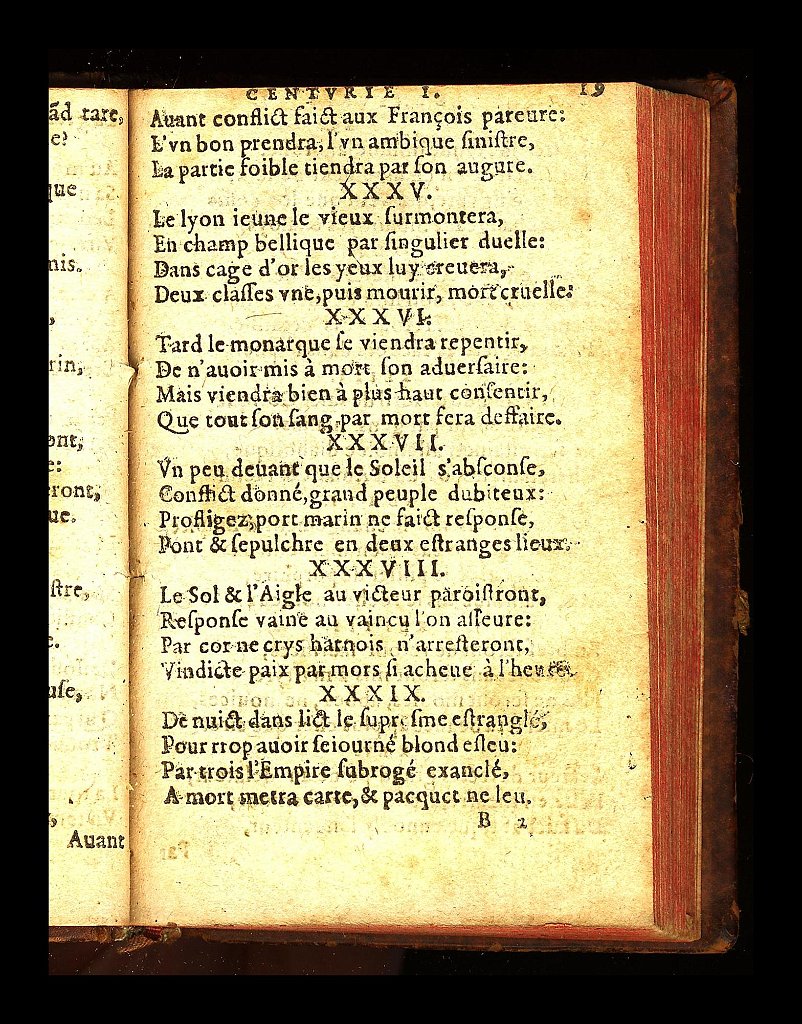 ãd rare,
e?
que
nis.
,
rin,
ont;
e:
ront;
ue.
ſtre,
e.
uſe,
,
Auant
CENTVRIE I. 19
Auant conflict faict aux François pareure:
L'vn bon prendra, l'vn ambique ſiniſtre,
La partie foible tiendra par ſon augure.
XXXV.
Le lyon ieune le vieux ſurmontera,
En champ bellique par ſingulier duelle:
Dans cage d'or les yeux luy creuera,
Deux claſſes vne, puis mourir, mort cruelle:
XXXVI.
Tard le monarque ſe viendra repentir,
De n'auoir mis à mort ſon aduerſaire:
Mais viendra bien à plus haut conſentir,
Que tout ſon ſang par mort fera deffaire.
XXXVII.
Vn peu deuant que le Soleil s'abſconſe,
Conflict donné, grand peuple dubiteux:
Profligez, port marin ne faict reſponſe,
Pont & ſepulchre en deux eſtranges lieux.
XXXVIII.
Le Sol & l'Aigle au victeur paroiſtront,
Reſponſe vaine au vaincu l'on aſſeure:
Par cor ne crys harnois n'arreſteront,
Vindicte paix par mors ſi acheue à l'heure.
XXXIX.
De nuict dans lict le ſupreſme eſtranglé,
Pour rrop auoir ſeiourné blond eſleu:
Par trois l'Empire ſubrogé exanclé,
A mort metra carte, & pacquet ne leu.
B 2